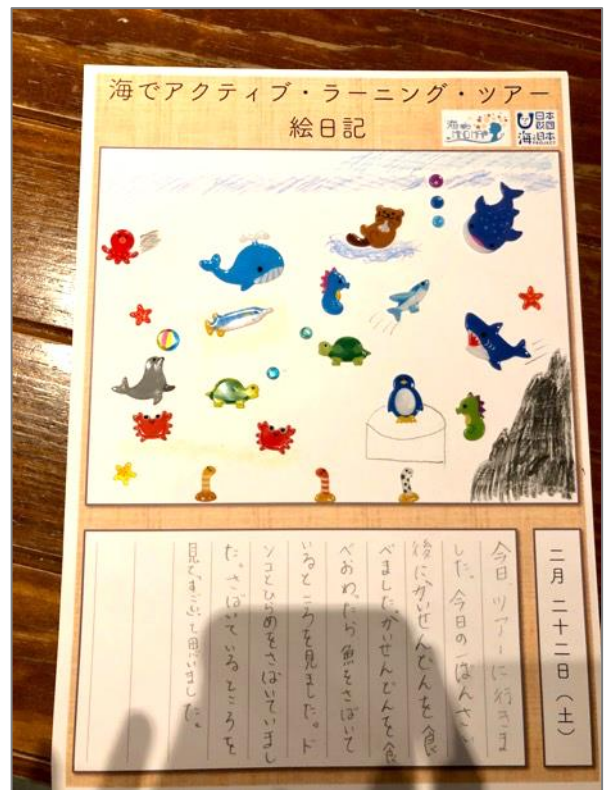 海でアクティブ・ラーニング・ツアー
絵日記
海と日本
PROJECT
二月 二十二日（土）
今日、ツアーに行きま
した。今日の一ばんさい
後にかいせんどんを食
べました。かいせんどんを食
べおわったら魚をさばいて
いるところを見ました。ド
ンコとひらめをさばいていまし
た。さばいているところを
見て、すごいって思いました。